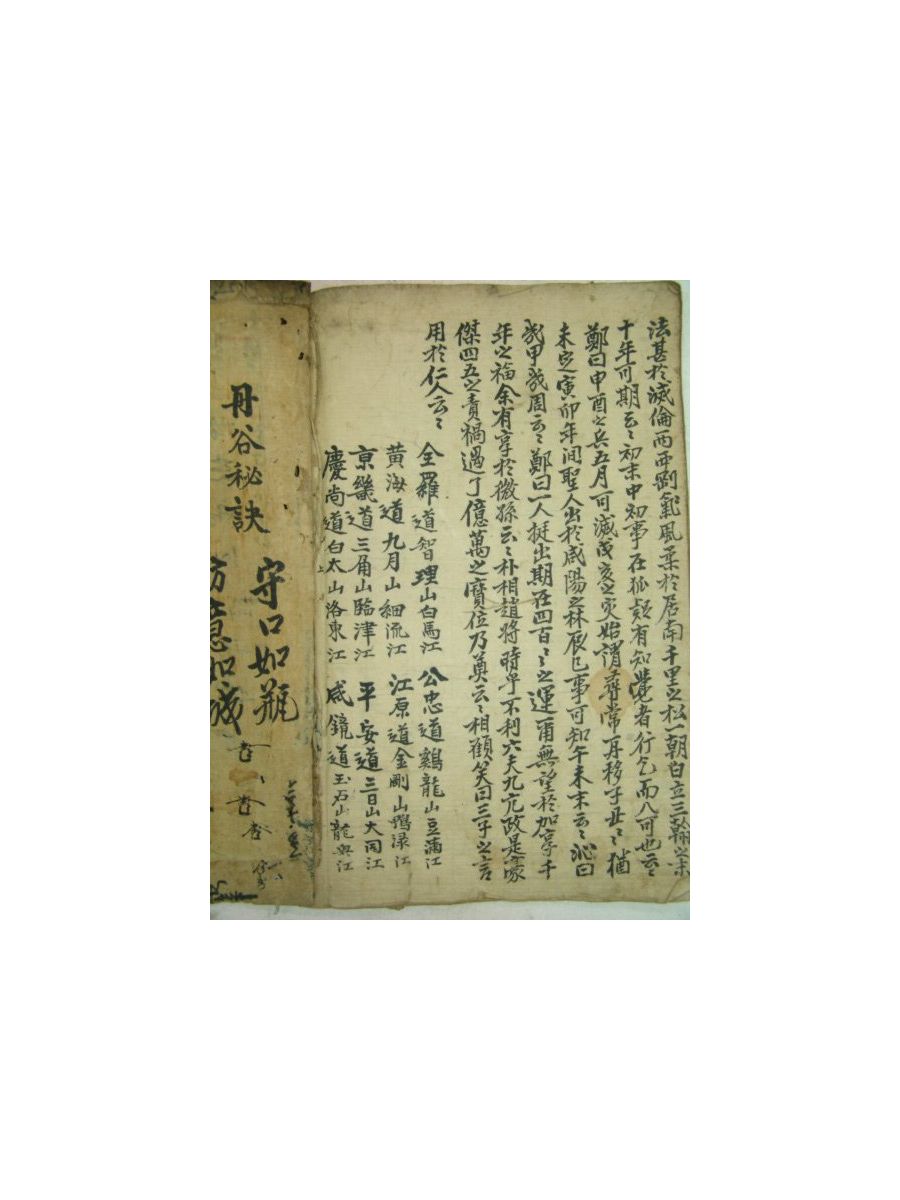 法甚於滅倫西西剛氣風柔於居南千里之松一朝白立三韓之末
十年可期云〻初末中知事在狐疑有知覺者行乞而入可也云〻
鄭曰申酉之兵五月可滅戌亥之灾始謂尋常再移子丑〻猶
未定寅卯年间聖人出於咸陽之林辰巳事可知午未末云〻沁曰
幾甲幾周云〻鄭曰一人挺出期在四百〻之運甭無望於加享千
年之福余有享於微孫云〻朴相趙將時乎不利六夫九宂政是豪
傑四五之責禍過了億萬之寶位乃奠云〻相顧笑曰三子之言
用於仁人云〻
全羅道智理山白馬江 公忠道鷄龍山豆滿江
黄海道九月山細流江 江原道金剛山鴨渌江
京畿道三角山臨津江 平安道三日山大同江
慶尚道白太山洛東江 咸鏡道玉石山龍興江
守口如瓶
防意如城
丹谷秘訣